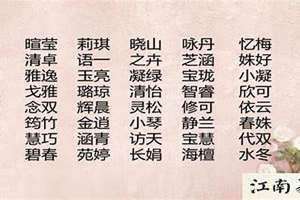 暄莹 莉琪 晓山 咏丹 忆梅
清卓 语一 之卉 芝涵 姝好
雅逸 玉亮 凝绿 宝珑 小凝
戈雅 璐琼 清怡 智睿 欣可
念双 辉晨 灵松 修可 依云
筠竹 金逍 小琴 静兰 春姝
慧巧 涵青 访天 宝慧 代双
碧春 苑婷 长娟 海檀 水冬
江南